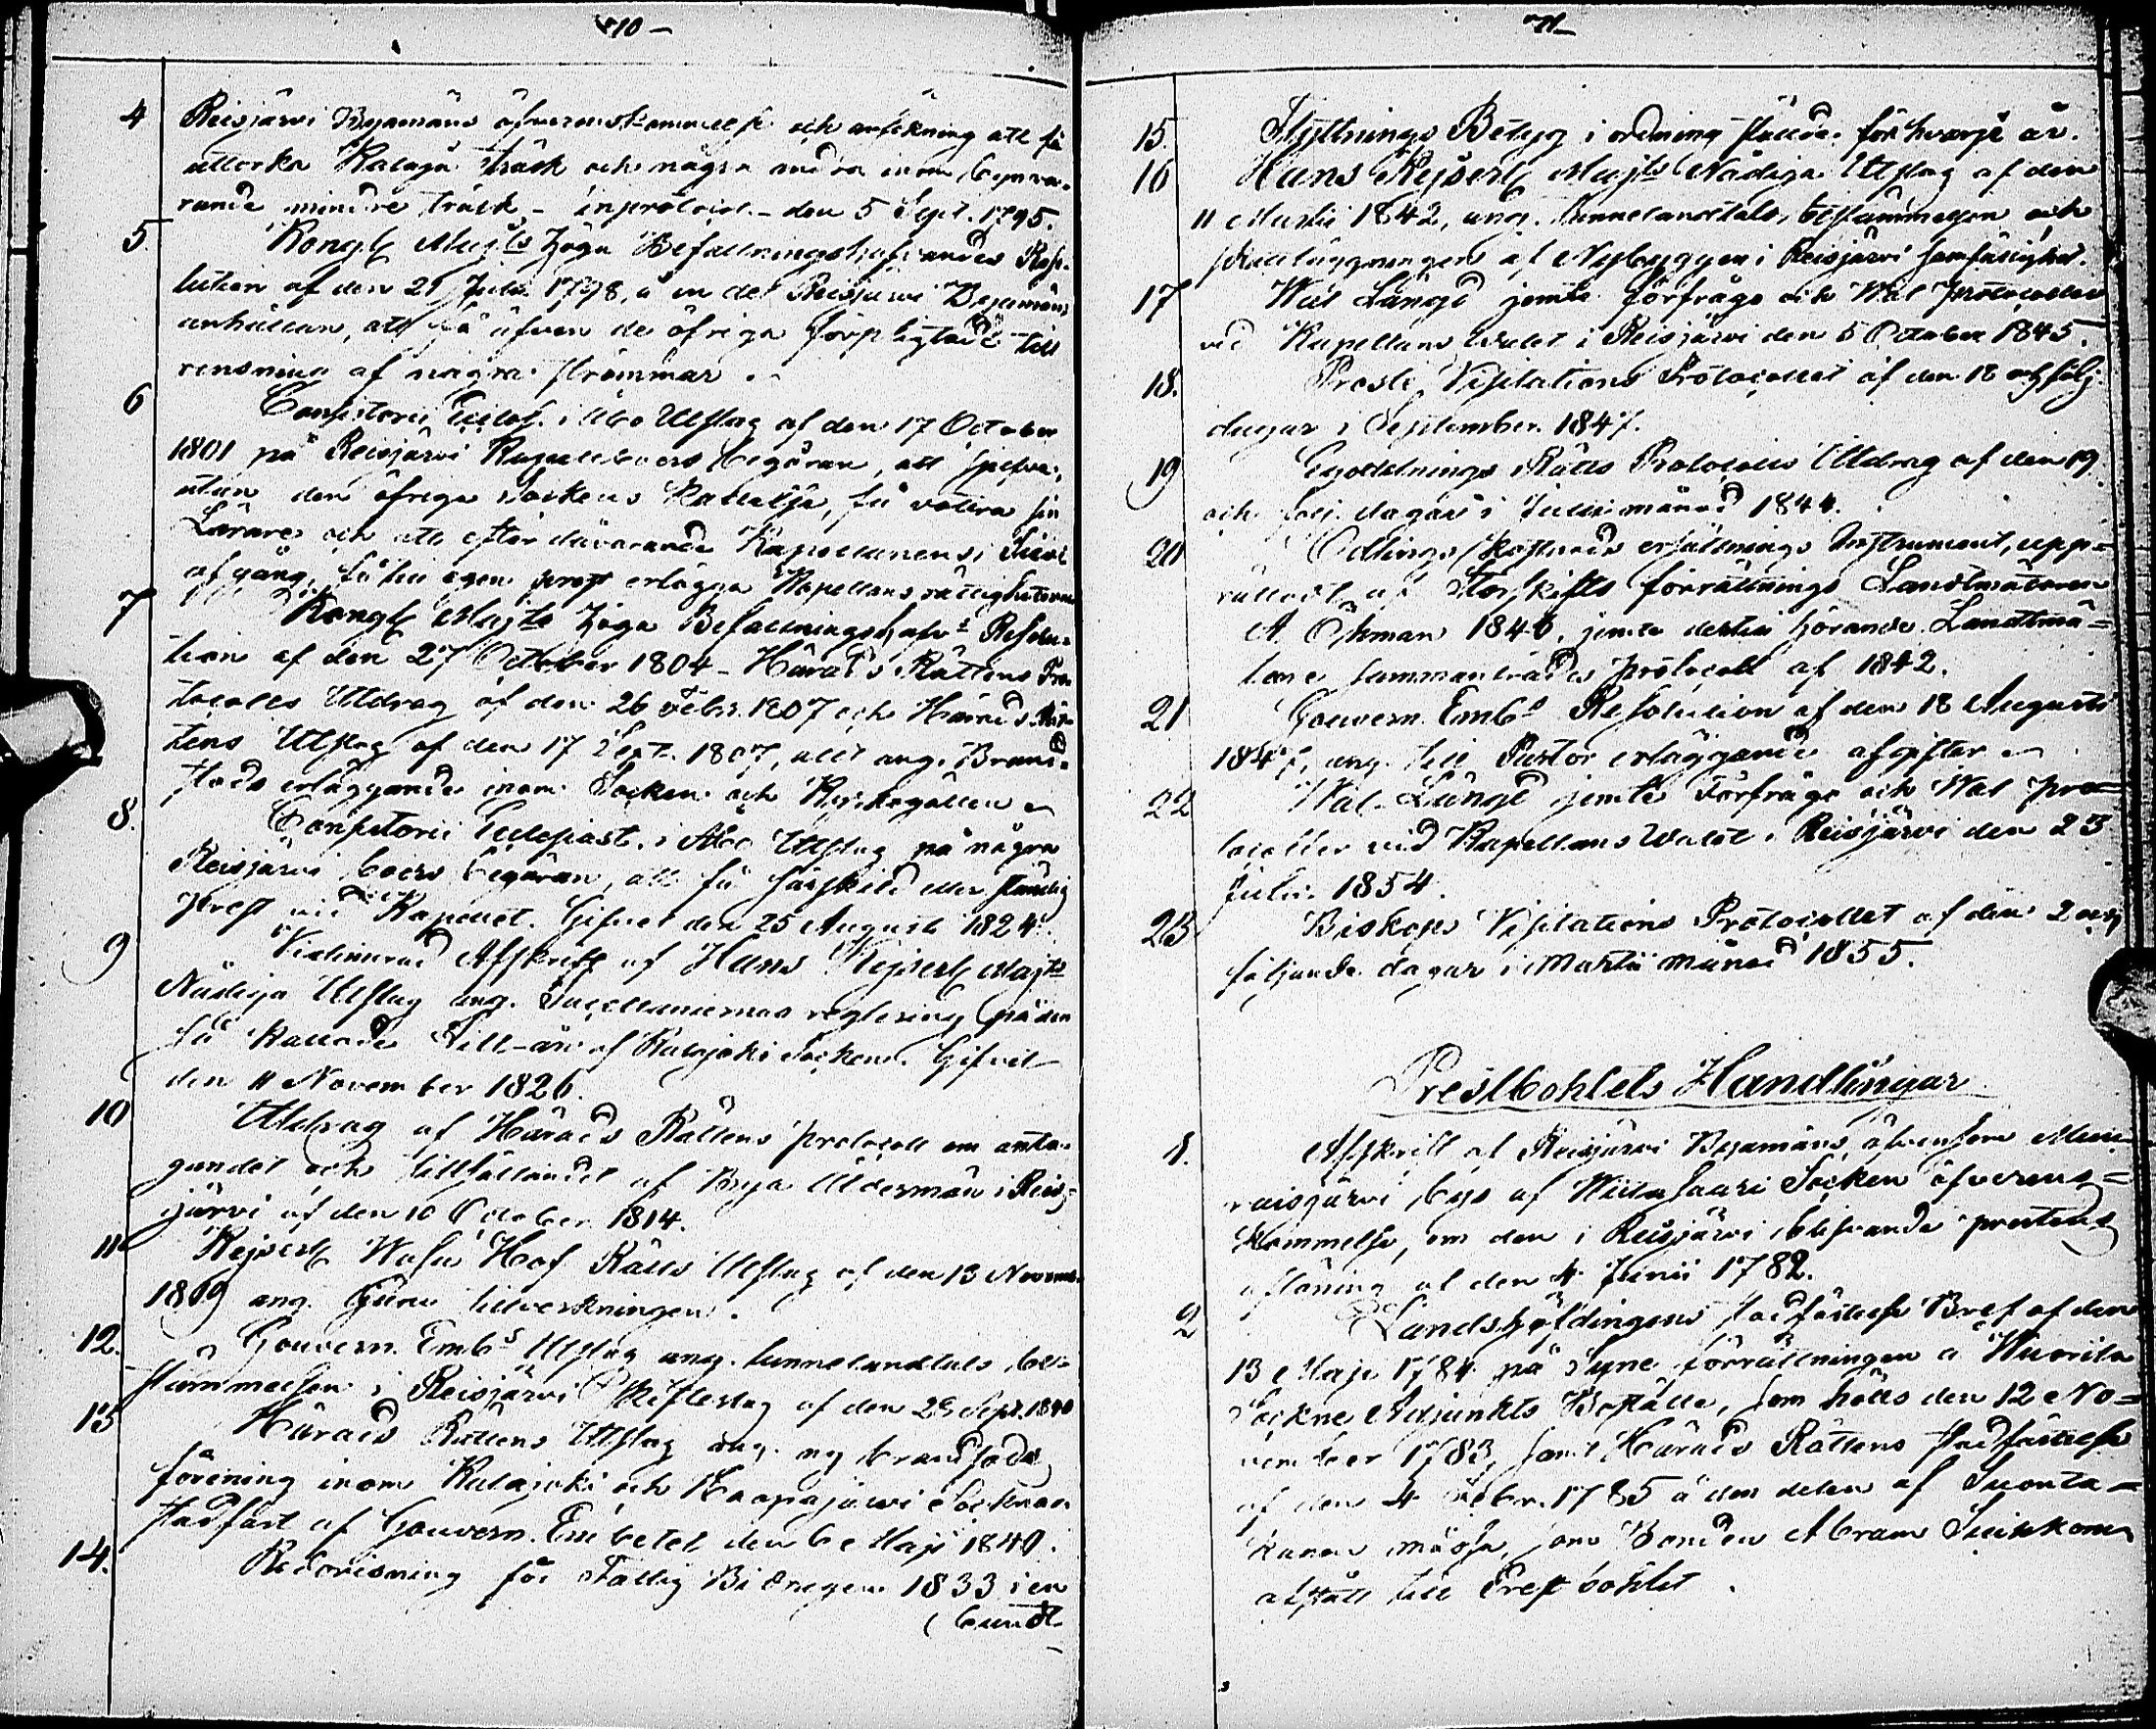 -10-
4 Reisjärvi Byamäns öfverenskommelse och ansökning att få
uttorka Kalaja träsk och några andra inom byn va-
rande mindre träsk - inprotocol. - den 5 Sept. 1795.
5 Kongl Majts Höga Befallningshafvandes Reso-
lution af den 21 Julii 1798, å en del Reisjärvi Byamäns
anhållan, att få äfven de öfriga förpligtade till
rensning af några strömmar.
6 Consistorii Eccles. i Åbo Utslag af den 17 October
1801 på Reisjärvi Kapellboers begäran, att sjelfva,
utan den öfriga Sockens kallelse, få votera sin
Lärare och att efter dåvarande Kapellanens
afgång, få till egen prest erlägga Kapellans rättigheterna
7 Kongl Majts Höga Befallningshafvs Resolu-
tion af den 27 October 1804 - Härads Rättens Pro-
tocolls Utdrag af den 26 Febr. 1807 och Härads Rät-
tens Utslag af den 17 Sept. 1807, allt ang. Brand-
stods erläggande inom Socken och Kyrkogällen
8. Consistorii Ecclesiast. i Åbo Utslag på några
Reisjärvi boers begäran, att få särskild eller ständig
prest vid Kapellet. Gifvet den 25 Augusti 1824.
9 Vidimerad Afskrift af Hans Kejserl Majts
Nådiga Utslag ang. Sacellaniernas reglering på den
så kallade Sill-ån af Kalajoki Socken. Gifvet
den 11 November 1826.
10 Utdrag af Härads Rättens protocoll om anta-
gandet och tillsättandet af Bya Ålderman i Reis-
järvi af den 10 October 1814.
11 Kejserl Wasa Hof Rätts Utslag af den 13 Novemb.
1819 ang. tillverkningen.
12. Gouvern. Embs Utslag ang. tunnelandtals be-
stämmelsen i Reisjärvi Skifteslag af den 28 Sept. 1840
13 Härads Rättens Utslag ang. ny brandstods
förening inom Kalajoki och Haapajärvi Socknar
stadfäst af Gouvern. Embetet den 6 Maji 1840.
14. Redovisning för Fattig Bidragen 1833 i en
(bundt
-11-
15. Flyttnings Betyg i ordning stälda för hvarje år.
16 Hans Kejserl Majts Nådiga Utslag af den
11 Martii 1842, ang. tunnelandtals, bestämmelsen och
skattläggningen af Nybyggen i Reisjärvi samfällighet.
17 Wal Längd jemte förfrågo och Wal protocoller
vid Kapellans walet i Reisjärvi den 5 October 1845.
18. Prosti Visitations Protocollet af den 18 och följ.
dagar i September 1847.
19 Egodelnings Rätts Protocolls Utdrag af den 19
och följ. dagar i Julii månad 1844.
20 Odlings kostnads ersättnings Instrument, upp-
rättadt af Storskifts förrättnings Landtmätaren
A. Öhman 1846, jemte dertill hörande Landtmä-
tare sammanträdes protocoll af 1842.
21 Gouvern. Embs Resolution af den 18 Augusti
1847, ang. till Pastor erläggande afgifter
22 Wal Längd jemte Förfrågo och Wal pro-
tocoller vid Kapellans Walet i Reisjärvi den 23
Julii 1854.
23 Biskops Visitations Protocollet af den 2 och
följande dagar i Martii månad 1855.
Prestbohlets Handlingar
1. Afskrift af Reisjärvi Byamäns, äfvensom
raisjärvi bys af Wiitasaari Socken öfverens-
kommelse, om den i Reisjärvi blifvande prestens
aflöning af den 4 Junii 1782.
2 Landshöfdingens stadfästelse Bref af den
13 Maji 1784 på Syne förrättningen å
Sockne Adjunkts Boställe, som hölls den 12 No-
vember 1783, samt Härads Rättens stadfästelse
af den 4 Febr. 1785 å den delen af Suonta-
kanen mossa, som Bonden Abram
afstått till Prestbohlet.